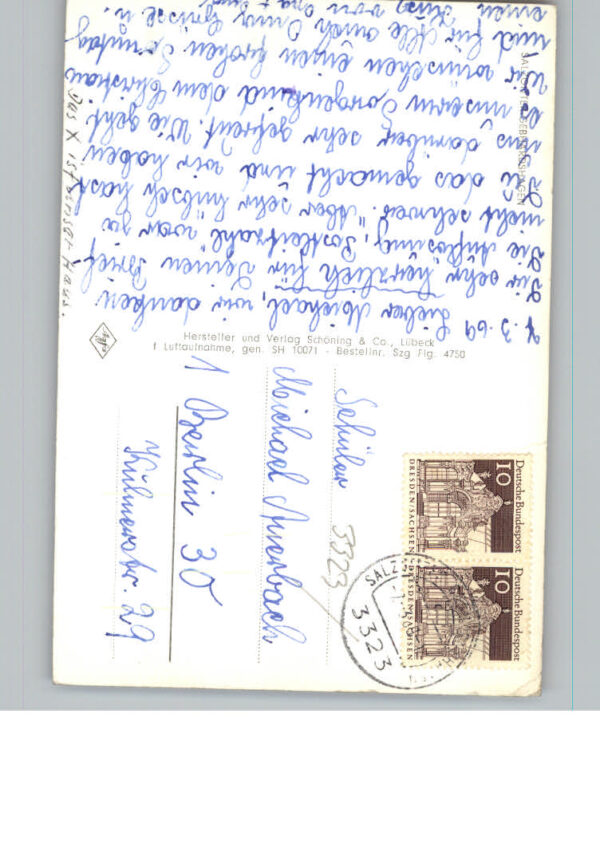 7.3.69 Lieber Michael, wir danken
Dir sehr herzlich für Deinen Brief
Die Auflösung „Postleitzahl" war ja
nicht schwer. Aber sehr hübsch hast
Du das gemacht und wir haben
uns darüber sehr gefreut. Wie geht
es unserm Sorgenkind dem Christian
Wir wünschen einen frohen Sonntag
und für Alle auch Grüsse u.
einen Kuss von Opa +
Das X ist unser Haus.
SALZGITTER-GEBHARDSHAGEN
Hersteller und Verlag Schöning & Co., Lübeck
f. Luftaufnahme, gen. SH 10071 - Bestellnr. Szg Flg. 4750
Schüler
Michael Auerbach
1 Berlin 30
Kulmerstr. 29
3323
Deutsche Bundespost
10
DRESDEN/SACHSEN
Deutsche Bundespost
10
DRESDEN/SACHSEN
3323
SALZ